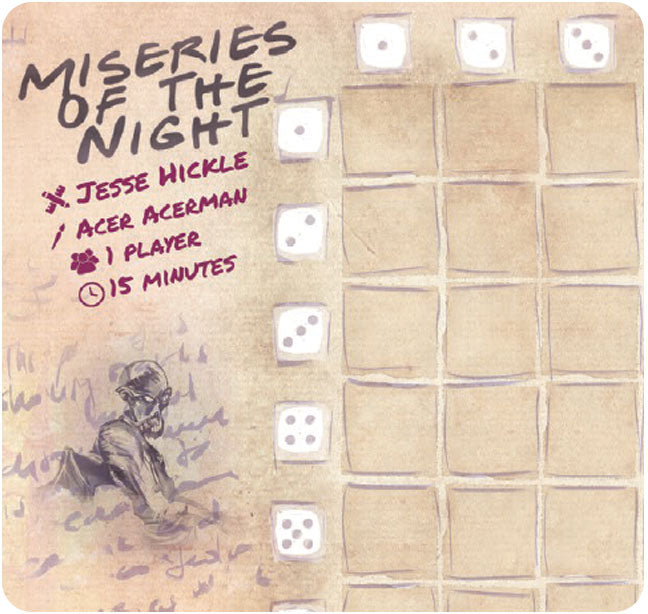 MISERIES
OF THE
NIGHT
JESSE HICKLE
ACER ACERMAN
1 PLAYER
15 MINUTES